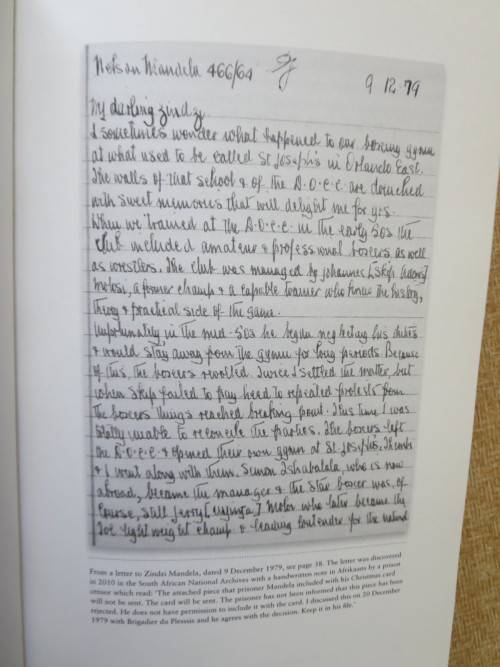 Nelson Mandela 466/64
9 12.79
My darling Zindzi,
I sometimes wonder what happened to our boxing gymn
at what used to be called St Joseph's in Orlando East.
The walls of that school & of the D.O.C.C. are drenched
with sweet memories that will delight me for yrs.
When we trained at the D.O.C.C. in the early 50s the
club included amateur & professional boxers as well
as wrestlers. The club was managed by Johannes (Skip
Molosi, a former champ & a capable trainer who knew the history,
theory & practical side of the game.
Unfortunately in the mid-50s he began neglecting his duties
& would stay away from the gymn for long periods. Because
of this, the boxers revolted. Twice I settled the matter, but
when Skip failed to pay heed to repeated protests from
the boxers things reached breaking point. This time I was
totally unable to reconcile the parties. The boxers left
the D.O.C.C. & opened their own gymn at St Joseph's. Thembi
& I went along with them. Simon Tshabalala, who is now
abroad, became the manager & the star boxer was, of
course, still Jerry (Uyinja) Moloi who later became the
Tvl light weight champ & leading contender for the national
From a letter to Zindzi Mandela, dated 9 December 1979, see page 38. The letter was discovered
in 2010 in the South African National Archives with a handwritten note in Afrikaans by a prison
censor which read: 'The attached piece that prisoner Mandela included with his Christmas card
will not be sent. The card will be sent. The prisoner has not been informed that this piece has been
rejected. He does not have permission to include it with the card. I discussed this on 20 December
1979 with Brigadier du Plessis and he agrees with the decision. Keep it in his file.'